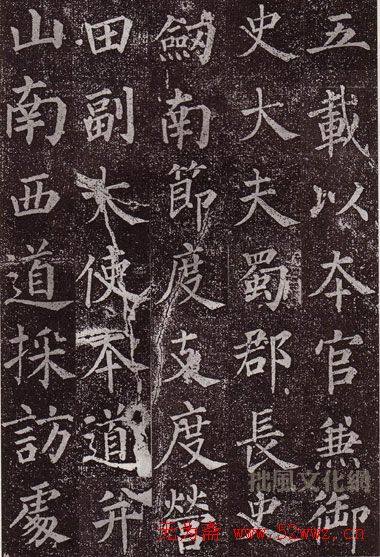 五載以本官兼御
史大夫蜀郡長史
劒南節度支度營
田副大使本道并
山南西道採訪處
拙風文化網
无为斋 www.52wwz.cn